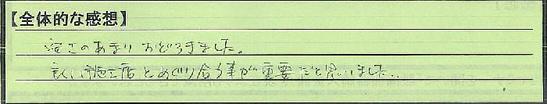 【全体的な感想】
安さのあまりおどろきました。
良い施工店とめぐり合う事が重要だと思いました。